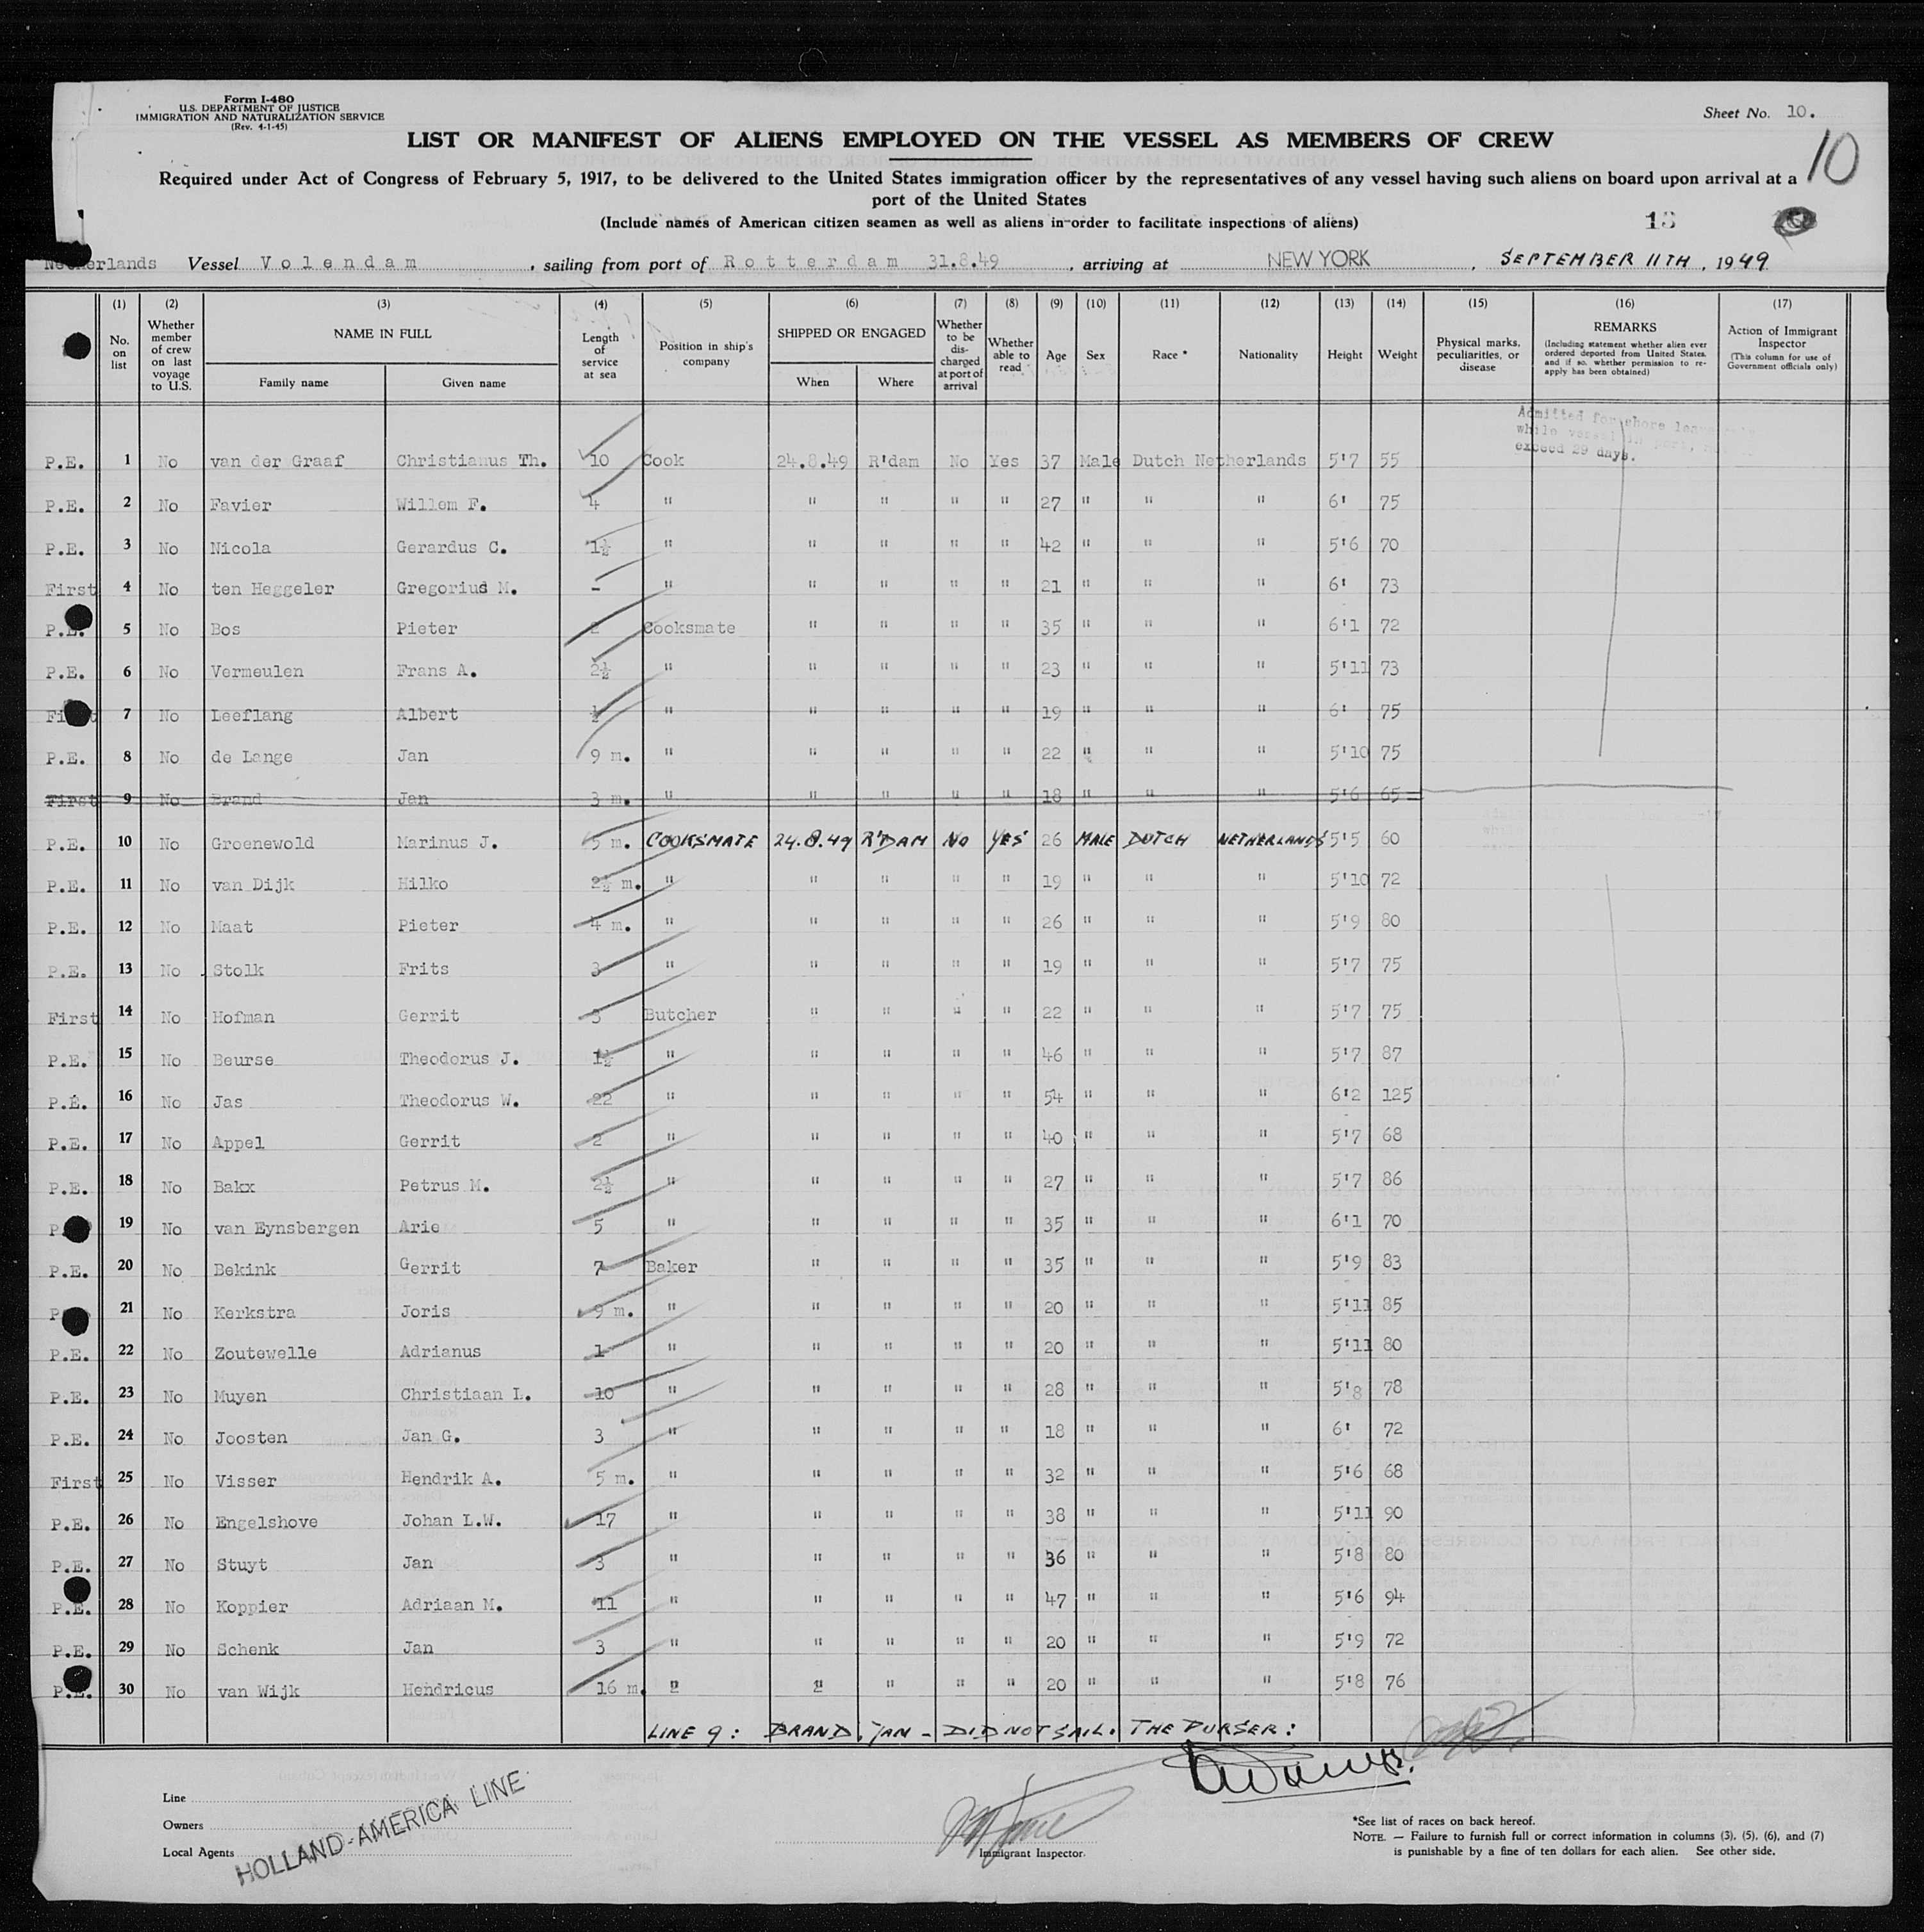 Form I-480
U.S. DEPARTMENT OF JUSTICE
IMMIGRATION AND NATURALIZATION SERVICE
(Rev. 4-1-45)
Sheet No. 10.
10
LIST OR MANIFEST OF ALIENS EMPLOYED ON THE VESSEL AS MEMBERS OF CREW
Required under Act of Congress of February 5, 1917, to be delivered to the United States immigration officer by the representatives of any vessel having such aliens on board upon arrival at a
port of the United States
(Include names of American citizen seamen as well as aliens in order to facilitate inspections of aliens)
13
Netherlands Vessel Volendam, sailing from port of Rotterdam 31.8.49, arriving at NEW YORK, SEPTEMBER 11TH, 1949
(1) (2) (3) (4) (5) (6) (7) (8) (9) (10) (11) (12) (13) (14) (15) (16) (17)
No. on list Whether member of crew on last voyage to U.S. NAME IN FULL Family name Given name Length of service at sea Position in ship's company SHIPPED OR ENGAGED When Where Whether to be discharged at port of arrival Whether able to read Age Sex Race * Nationality Height Weight Physical marks, peculiarities, or disease REMARKS (Including statement whether alien ever ordered deported from United States, and if so, whether permission to re-apply has been obtained) Action of Immigrant Inspector (This column for use of Government officials only)
Admitted for shore leave
while vessel in port,
exceed 29 days.
P.E. 1 No van der Graaf Christianus Th. 10 Cook 24.8.49 R'dam No Yes 37 Male Dutch Netherlands 5'7 55
P.E. 2 No Favier Willem F. 4 " " " " " 27 " " " 6' 75
P.E. 3 No Nicola Gerardus C. 1½ " " " " " 42 " " " 5'6 70
First 4 No ten Heggeler Gregorius M. - " " " " " 21 " " " 6' 73
P.E. 5 No Bos Pieter 2 Cooksmate " " " " 35 " " " 6'1 72
P.E. 6 No Vermeulen Frans A. 2½ " " " " " 23 " " " 5'11 73
First 7 No Leeflang Albert ½ " " " " " 19 " " " 6' 75
P.E. 8 No de Lange Jan 9 m. " " " " " 22 " " " 5'10 75
First 9 No Brand Jan 3 m. " " " " " 18 " " " 5'6 65
P.E. 10 No Groenewold Marinus J. 5 m. COOKSMATE 24.8.49 R'DAM NO YES 26 MALE DUTCH NETHERLANDS 5'5 60
P.E. 11 No van Dijk Hilko 2½ m. " " " " " 19 " " " 5'10 72
P.E. 12 No Maat Pieter 4 m. " " " " " 26 " " " 5'9 80
P.E. 13 No Stolk Frits 3 " " " " " 19 " " " 5'7 75
First 14 No Hofman Gerrit 3 Butcher " " " " 22 " " " 5'7 75
P.E. 15 No Beurse Theodorus J. 1½ " " " " " 46 " " " 5'7 87
P.E. 16 No Jas Theodorus W. 22 " " " " " 54 " " " 6'2 125
P.E. 17 No Appel Gerrit 2 " " " " " 40 " " " 5'7 68
P.E. 18 No Bakx Petrus M. 2½ " " " " " 27 " " " 5'7 86
P. 19 No van Eynsbergen Arie 5 " " " " " 35 " " " 6'1 70
P.E. 20 No Bekink Gerrit 7 Baker " " " " 35 " " " 5'9 83
P. 21 No Kerkstra Joris 9 m. " " " " " 20 " " " 5'11 85
P.E. 22 No Zoutewelle Adrianus 1 " " " " " 20 " " " 5'11 80
P.E. 23 No Muyen Christiaan L. 10 " " " " " 28 " " " 5'8 78
P.E. 24 No Joosten Jan G. 3 " " " " " 18 " " " 6' 72
First 25 No Visser Hendrik A. 5 m. " " " " " 32 " " " 5'6 68
P.E. 26 No Engelshove Johan L.W. 17 " " " " " 38 " " " 5'11 90
P.E. 27 No Stuyt Jan 3 " " " " " 36 " " " 5'8 80
P.E. 28 No Koppier Adriaan M. 11 " " " " " 47 " " " 5'6 94
P.E. 29 No Schenk Jan 3 " " " " " 20 " " " 5'9 72
P.E. 30 No van Wijk Hendricus 16 m. " " " " " 20 " " " 5'8 76
LINE 9: BRAND, JAN - DID NOT SAIL. THE PURSER:
Line
Owners
Local Agents
HOLLAND-AMERICA LINE
Immigrant Inspector.
*See list of races on back hereof.
NOTE. — Failure to furnish full or correct information in columns (3), (5), (6), and (7)
is punishable by a fine of ten dollars for each alien. See other side.